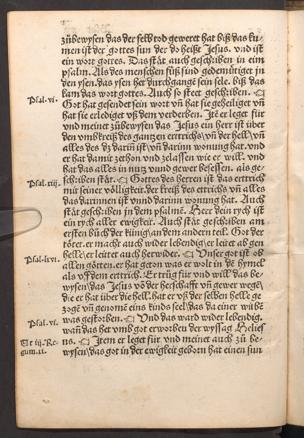 zůbewysen das der selb tod geweret hat biß das ku-
men ist der gottes sun der do heißt Jesus. vnd ist
ein wort gottes. Das stat auch geschriben in eim
psalm. Als des menschen fůß sind gedemütiget in
den ysen. das ysen her durchgangē sein sele. biß das
kam das wort gottes. Auch so steet geschriben.
Psal. vi.
Got hat gesendet sein wort vñ hat sie geheiliget vñ
hat sie erlediget vß dem verderben. Jtē er leget für
vnd meinet zůbewysen das Jesus ein herr ist über
den vmbkreiß des gantzen ertrichs vñ der hell vñ
alles des dz darin ist vnd darinn wonung hat. vnd
er hat damit zethon vnd zelassen wie er will. vnd
hat das alles in nutz vnnd gewer besessen. als ge-
schriben stat. Gottes des herren ist das ertrich
Psal. xiij.
mit seiner völligkeit. der kreiß des ertrichs vñ alles
das darinnen ist vnnd darinn wonung hat. Auch
stat geschriben in dem psalmē. Herr dein rych ist
ein rych aller ewigkeit. Auch stat geschriben am
ersten bůch der künig an dem andern teil. Got der
tötet. er macht auch wider lebendig er leitet ab gen
helle er leitet auch herwider. Unser got ist ob
Psal. lxvi.
allen götten. er hat geton was er wolt in dē hymel
als vff dem ertrich. Er trůg für vnd will das be-
wysen das Jesus vō der herschafft vñ gewer wegē
die er hat über die hell. hat er vß der selben helle ge-
zogē vñ genomē eins kinds seel das da einer witwe
Psal. vi.
was gestorben. Und das ward wider lebendig.
wañ das het vmb got erworben der wyssag Helise
Et iij. Re
gum. ij.
us. Jtem er leget für vnd meinet auch zů be-
wysen das got in der ewigkeit geborn hat einen sun